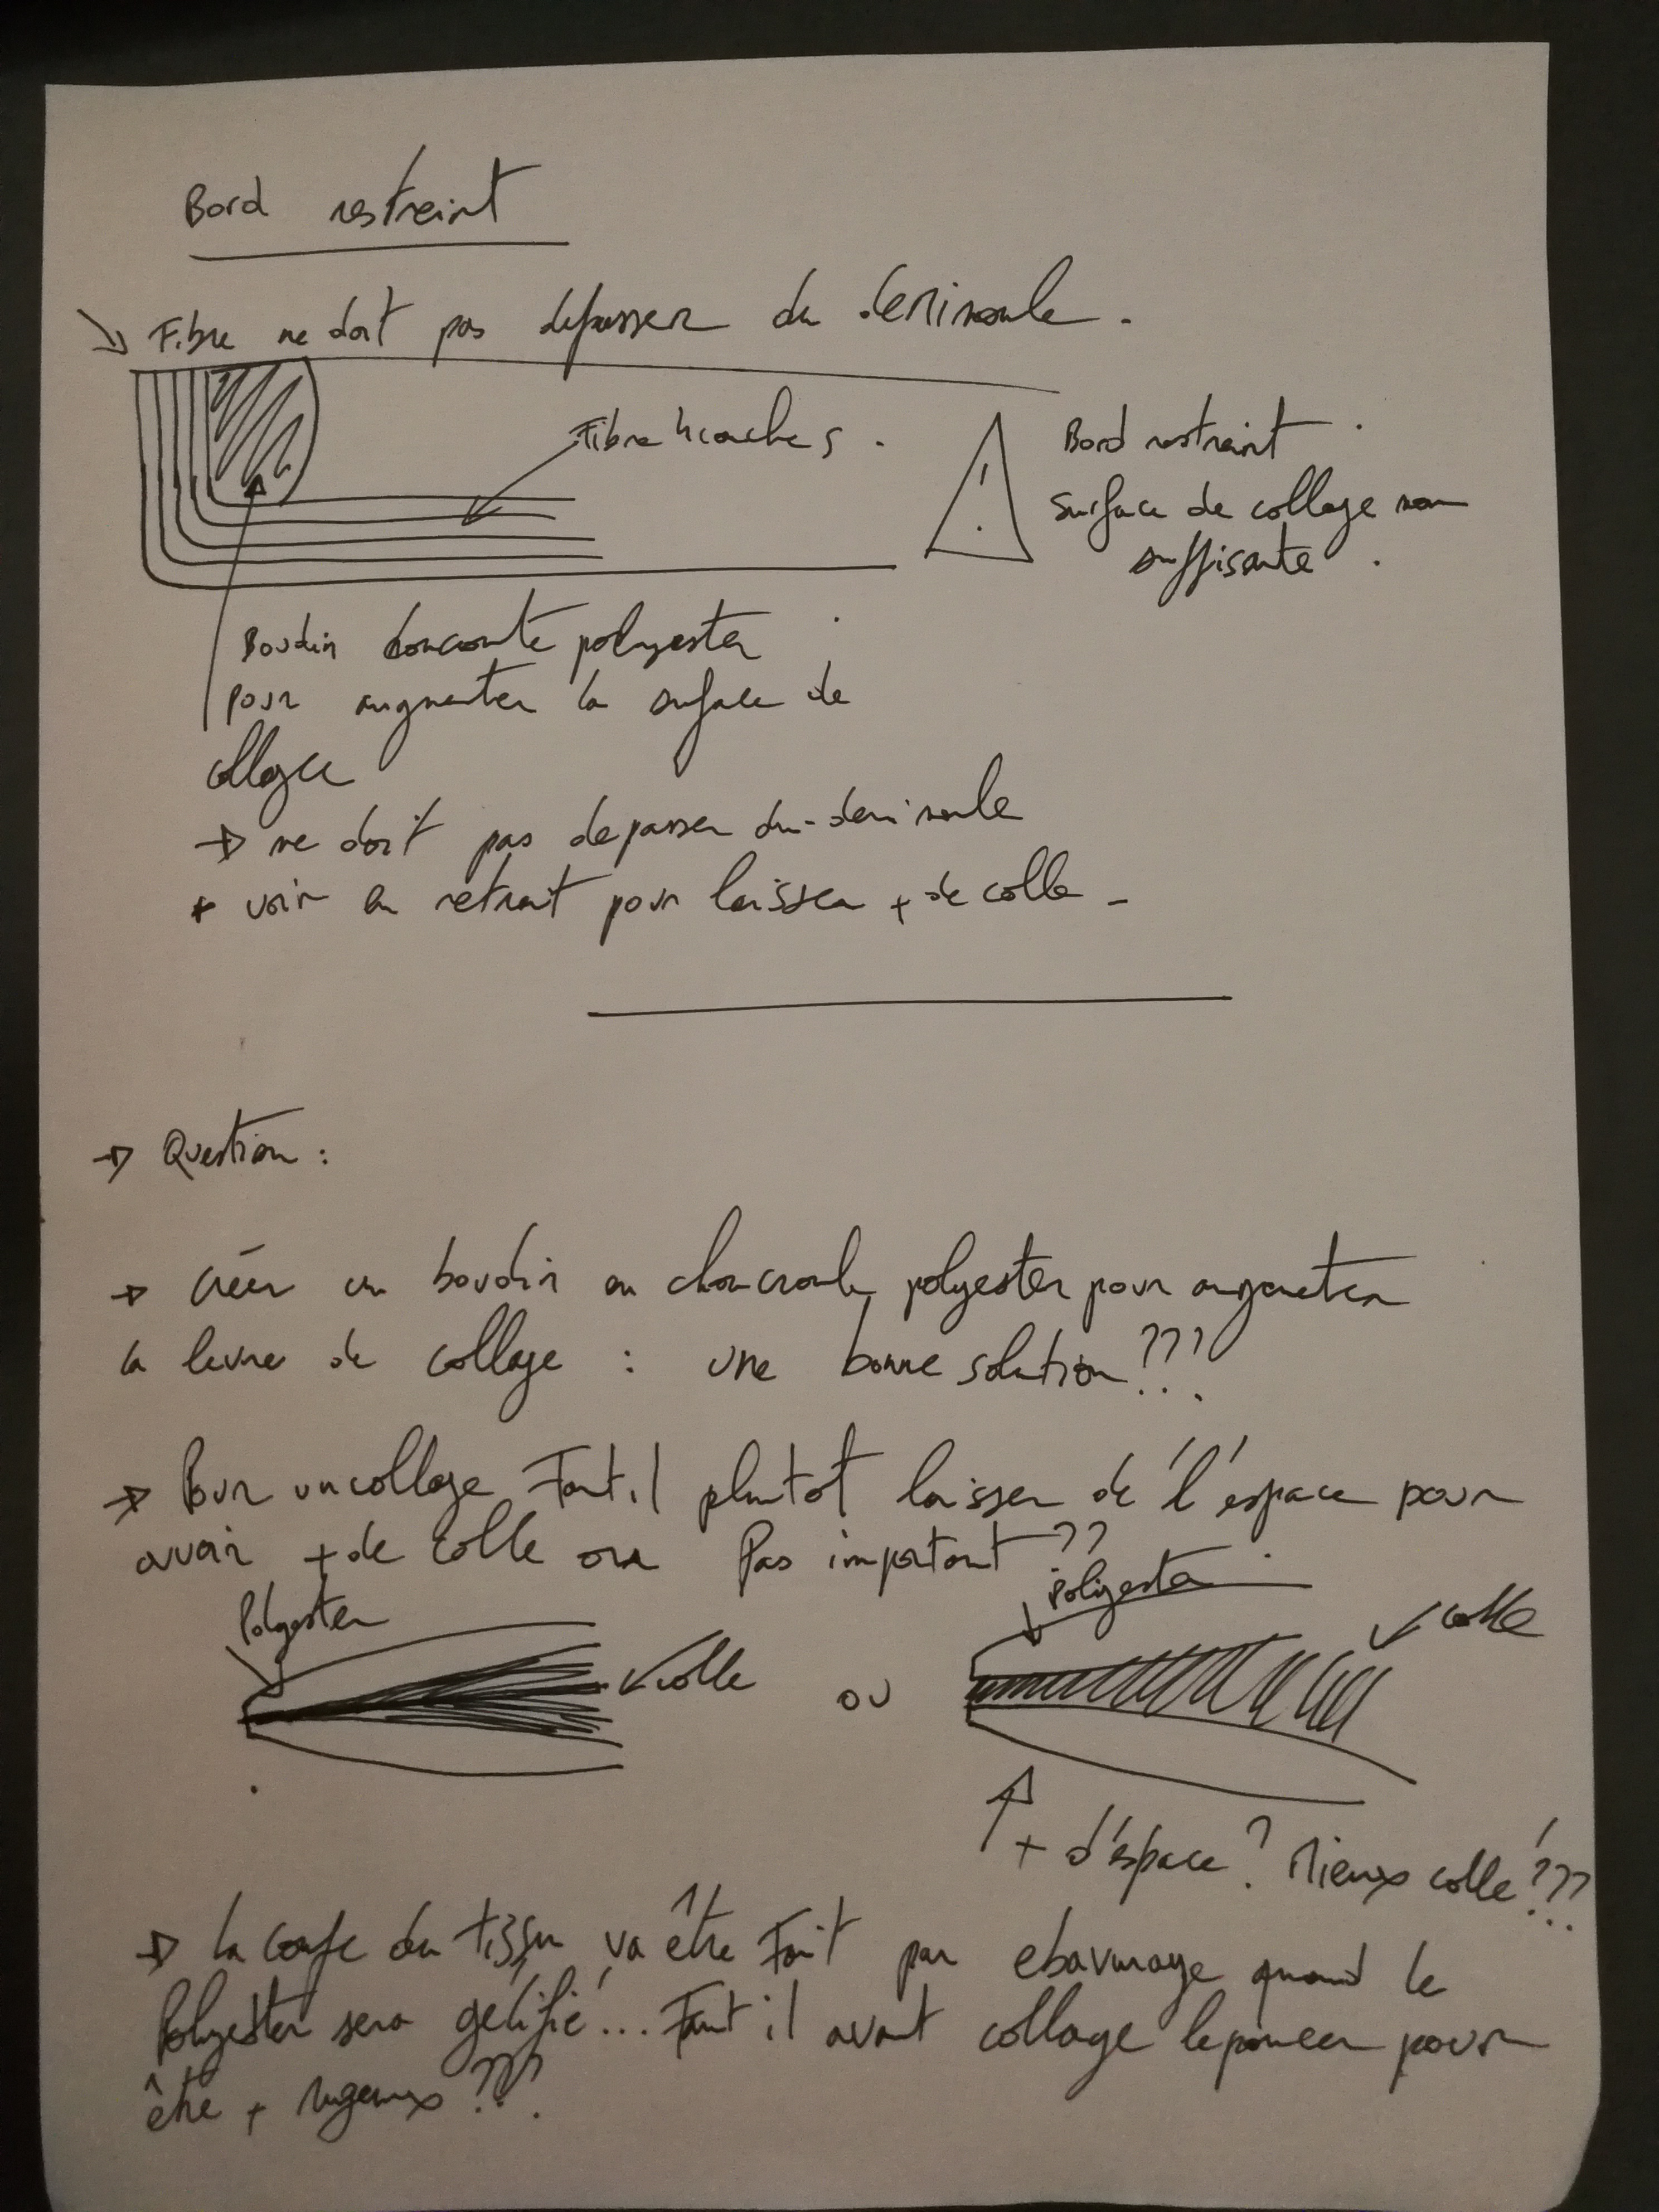 Bord restreint
Fibre ne doit pas depasser du demimoule.
Fibre 4 couches.
Bord restreint
surface de collage non
suffisante.
Boudin polyester
pour augmenter la surface de
collage
→ ne doit pas depasser du demi moule
+ voir en retrait pour laisser + de colle -
→ Question :
→ Créer un boudin en choucroute polyester pour augmenter
la levre de collage : une bonne solution ???
→ Pour un collage Faut.il plutot laisser de l'espace pour
avoir + de colle ou Pas important ??
Polyester
colle
ou
Polyester
colle
+ d'espace ? Mieux collé ???
→ la coupe du tissu va être Fait par ebavurage quand le
Polyester sera gélifié... Faut il avant collage le poncer pour
être + rugeux ???